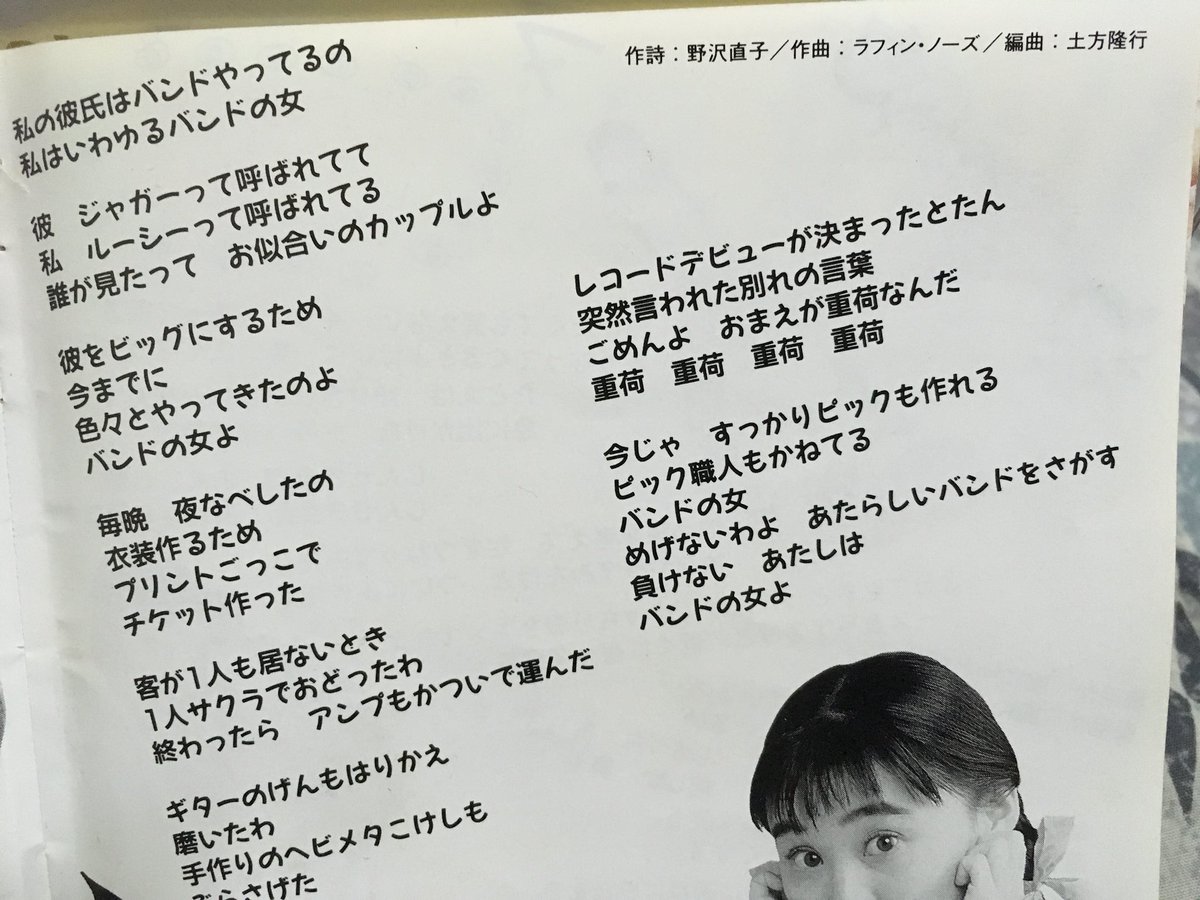 作詩：野沢直子／作曲：ラフィン・ノーズ／編曲：土方隆行
私の彼氏はバンドやってるの
私はいわゆるバンドの女
彼　ジャガーって呼ばれてて
私　ルーシーって呼ばれてる
誰が見たって　お似合いのカップルよ
彼をビッグにするため
今までに
色々とやってきたのよ
バンドの女よ
毎晩　夜なべしたの
衣装作るため
プリントごっこで
チケット作った
客が1人も居ないとき
1人サクラでおどったわ
終わったら　アンプもかついで運んだ
ギターのげんもはりかえ
磨いたわ
手作りのヘビメタこけしも
ぶらさげた
レコードデビューが決まったとたん
突然言われた別れの言葉
ごめんよ　おまえが重荷なんだ
重荷　重荷　重荷　重荷
今じゃ　すっかりピックも作れる
ピック職人もかねてる
バンドの女
めげないわよ　あたらしいバンドをさがす
負けない　あたしは
バンドの女よ